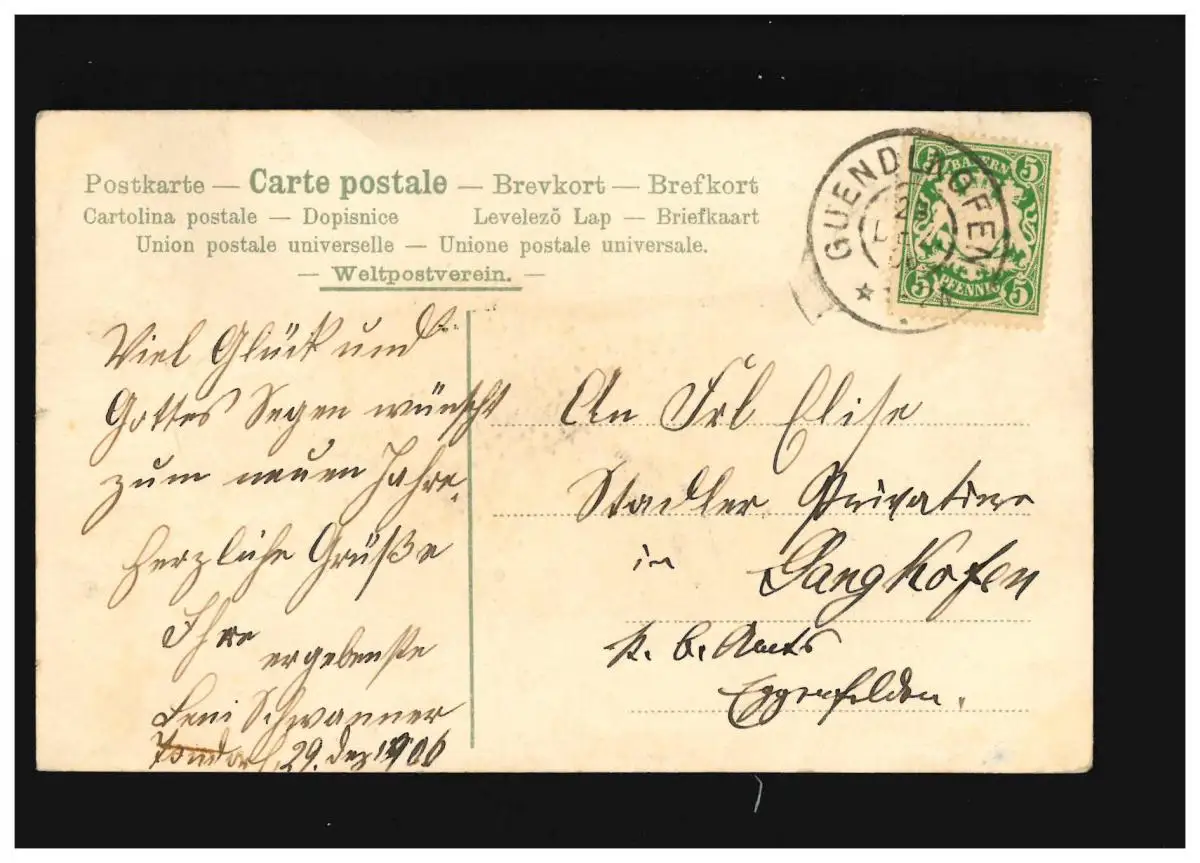 Postkarte — Carte postale — Brevkort — Brefkort
Cartolina postale — Dopisnice Levelező Lap — Briefkaart
Union postale universelle — Unione postale universale.
— Weltpostverein. —
GUENDLKOFEN
BAYERN
5 5
PFENNIG
5 5
Viel Glück und
Gottes Segen wünscht
zum neuen Jahre.
Herzliche Grüße
Ihre
ergebenste
Leni Schwanner
29. Dez 1906
An Frl Elise
Stadler Privatiere
in Gangkofen
k. b. Amts
Eggenfelden.